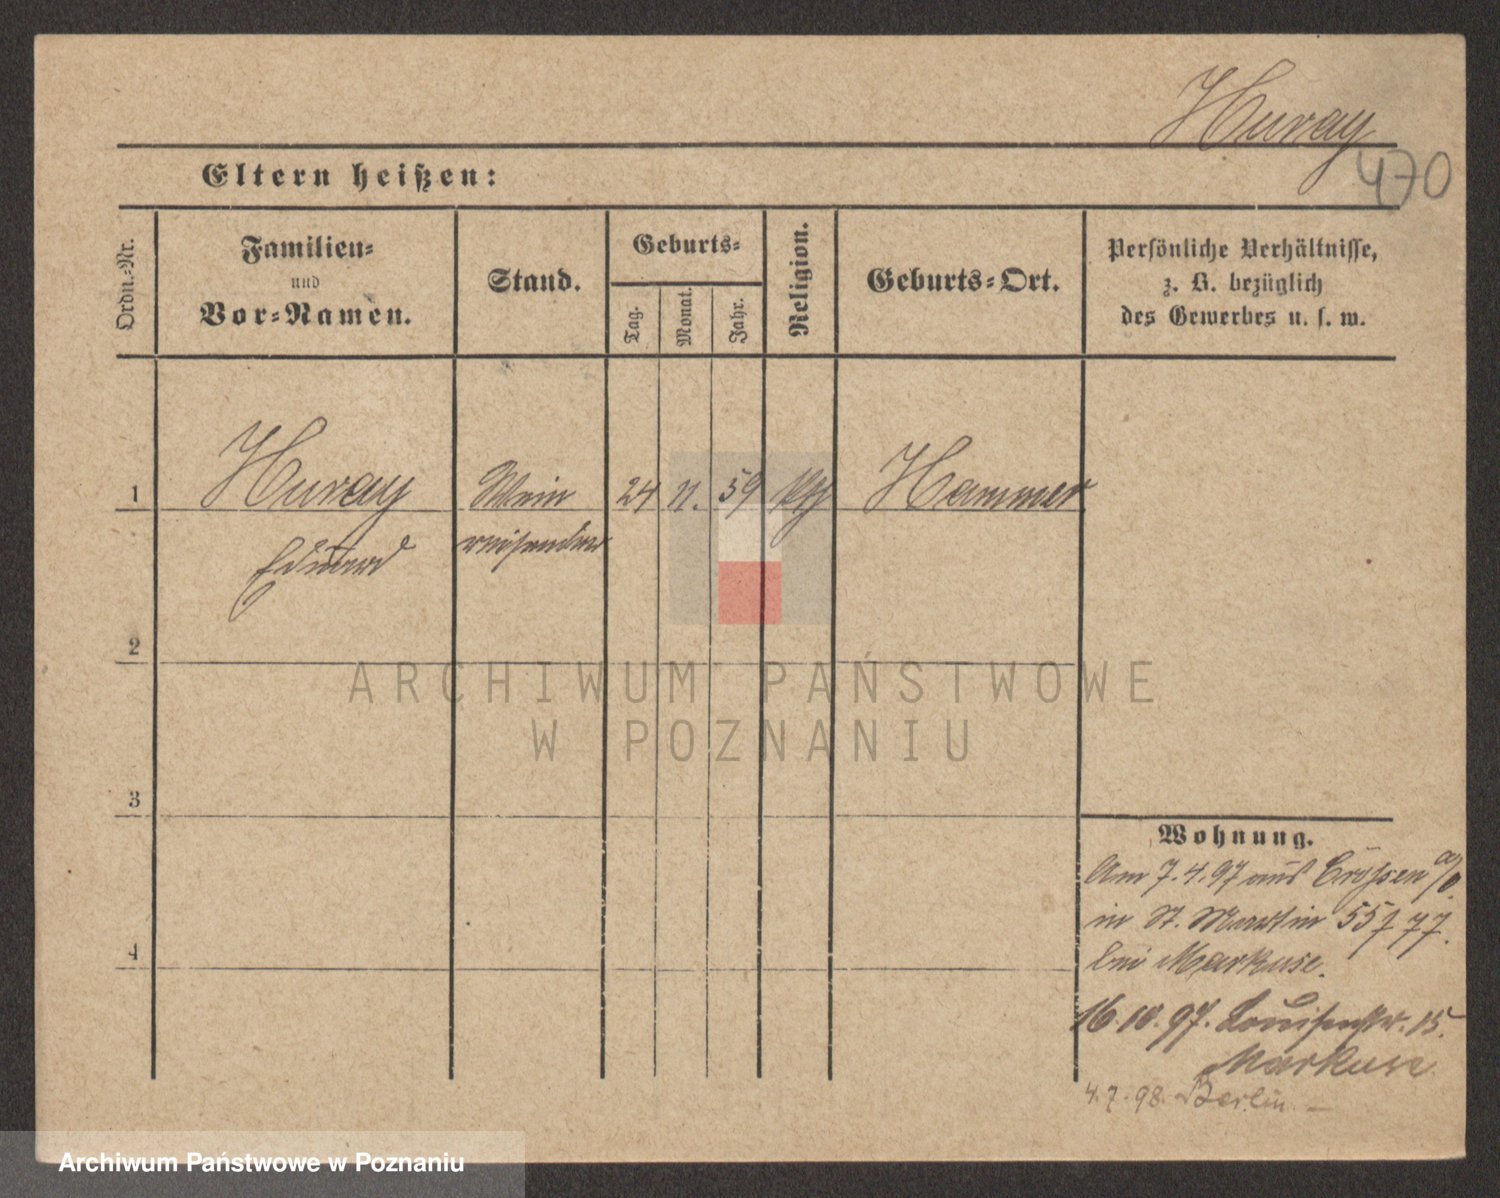 Huray
470
Eltern heißen:
Ordn.-Nr.
Familien-
und
Vor-Namen.
Stand.
Geburts-
Tag.
Monat.
Jahr.
Religion.
Geburts-Ort.
Persönliche Verhältnisse,
z. B. bezüglich
des Gewerbes u. s. w.
1
Huray
Wein
24
11.
59
Hammer
Eduard
reisender
2
3
4
Wohnung.
Am 7.4.97 aus Crossen a/O.
in St. Martin 55
bei Markuse.
16.10.97. Louisenstr. 15.
Markuse
4.7.98. Berlin. —
ARCHIWUM PAŃSTWOWE
W POZNANIU
Archiwum Państwowe w Poznaniu